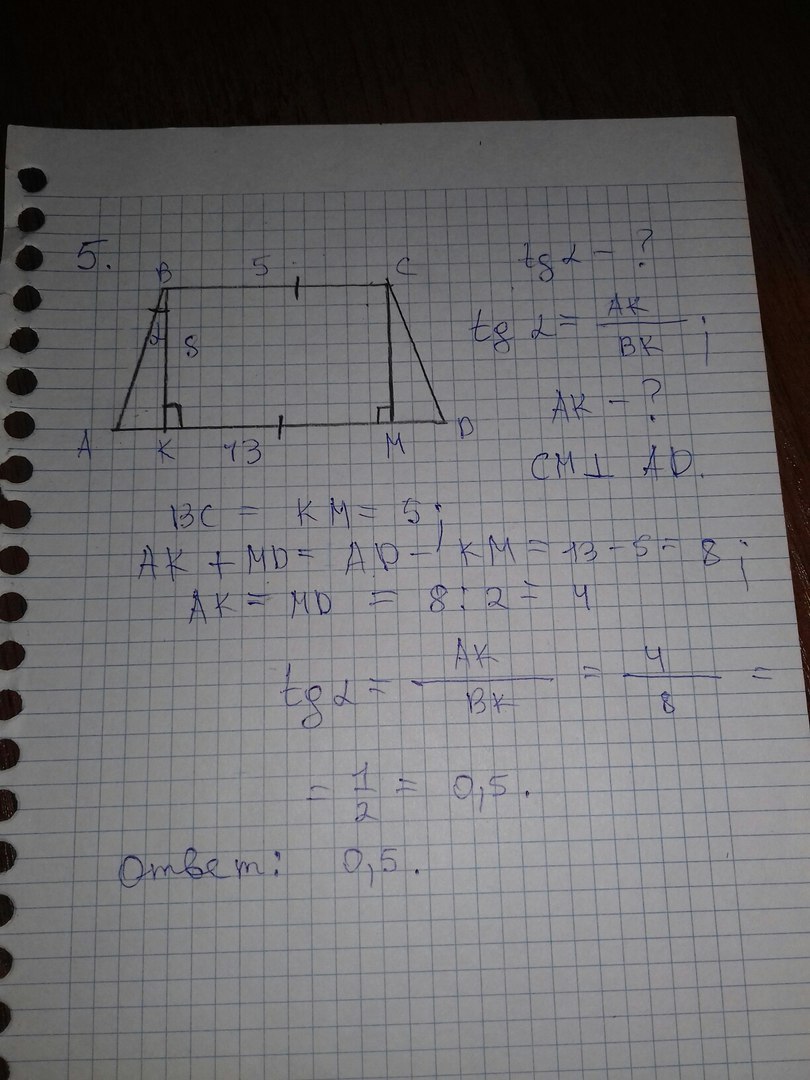 5.
B 5 C
α 8
A K 13 M D
tg α - ?
tg α = AK / BK ;
AK - ?
CM ⊥ AD.
BC = KM = 5;
AK + MD = AD - KM = 13 - 5 = 8;
AK = MD = 8 : 2 = 4
tg α = AK / BK = 4 / 8 =
= 1 / 2 = 0,5.
Ответ: 0,5.